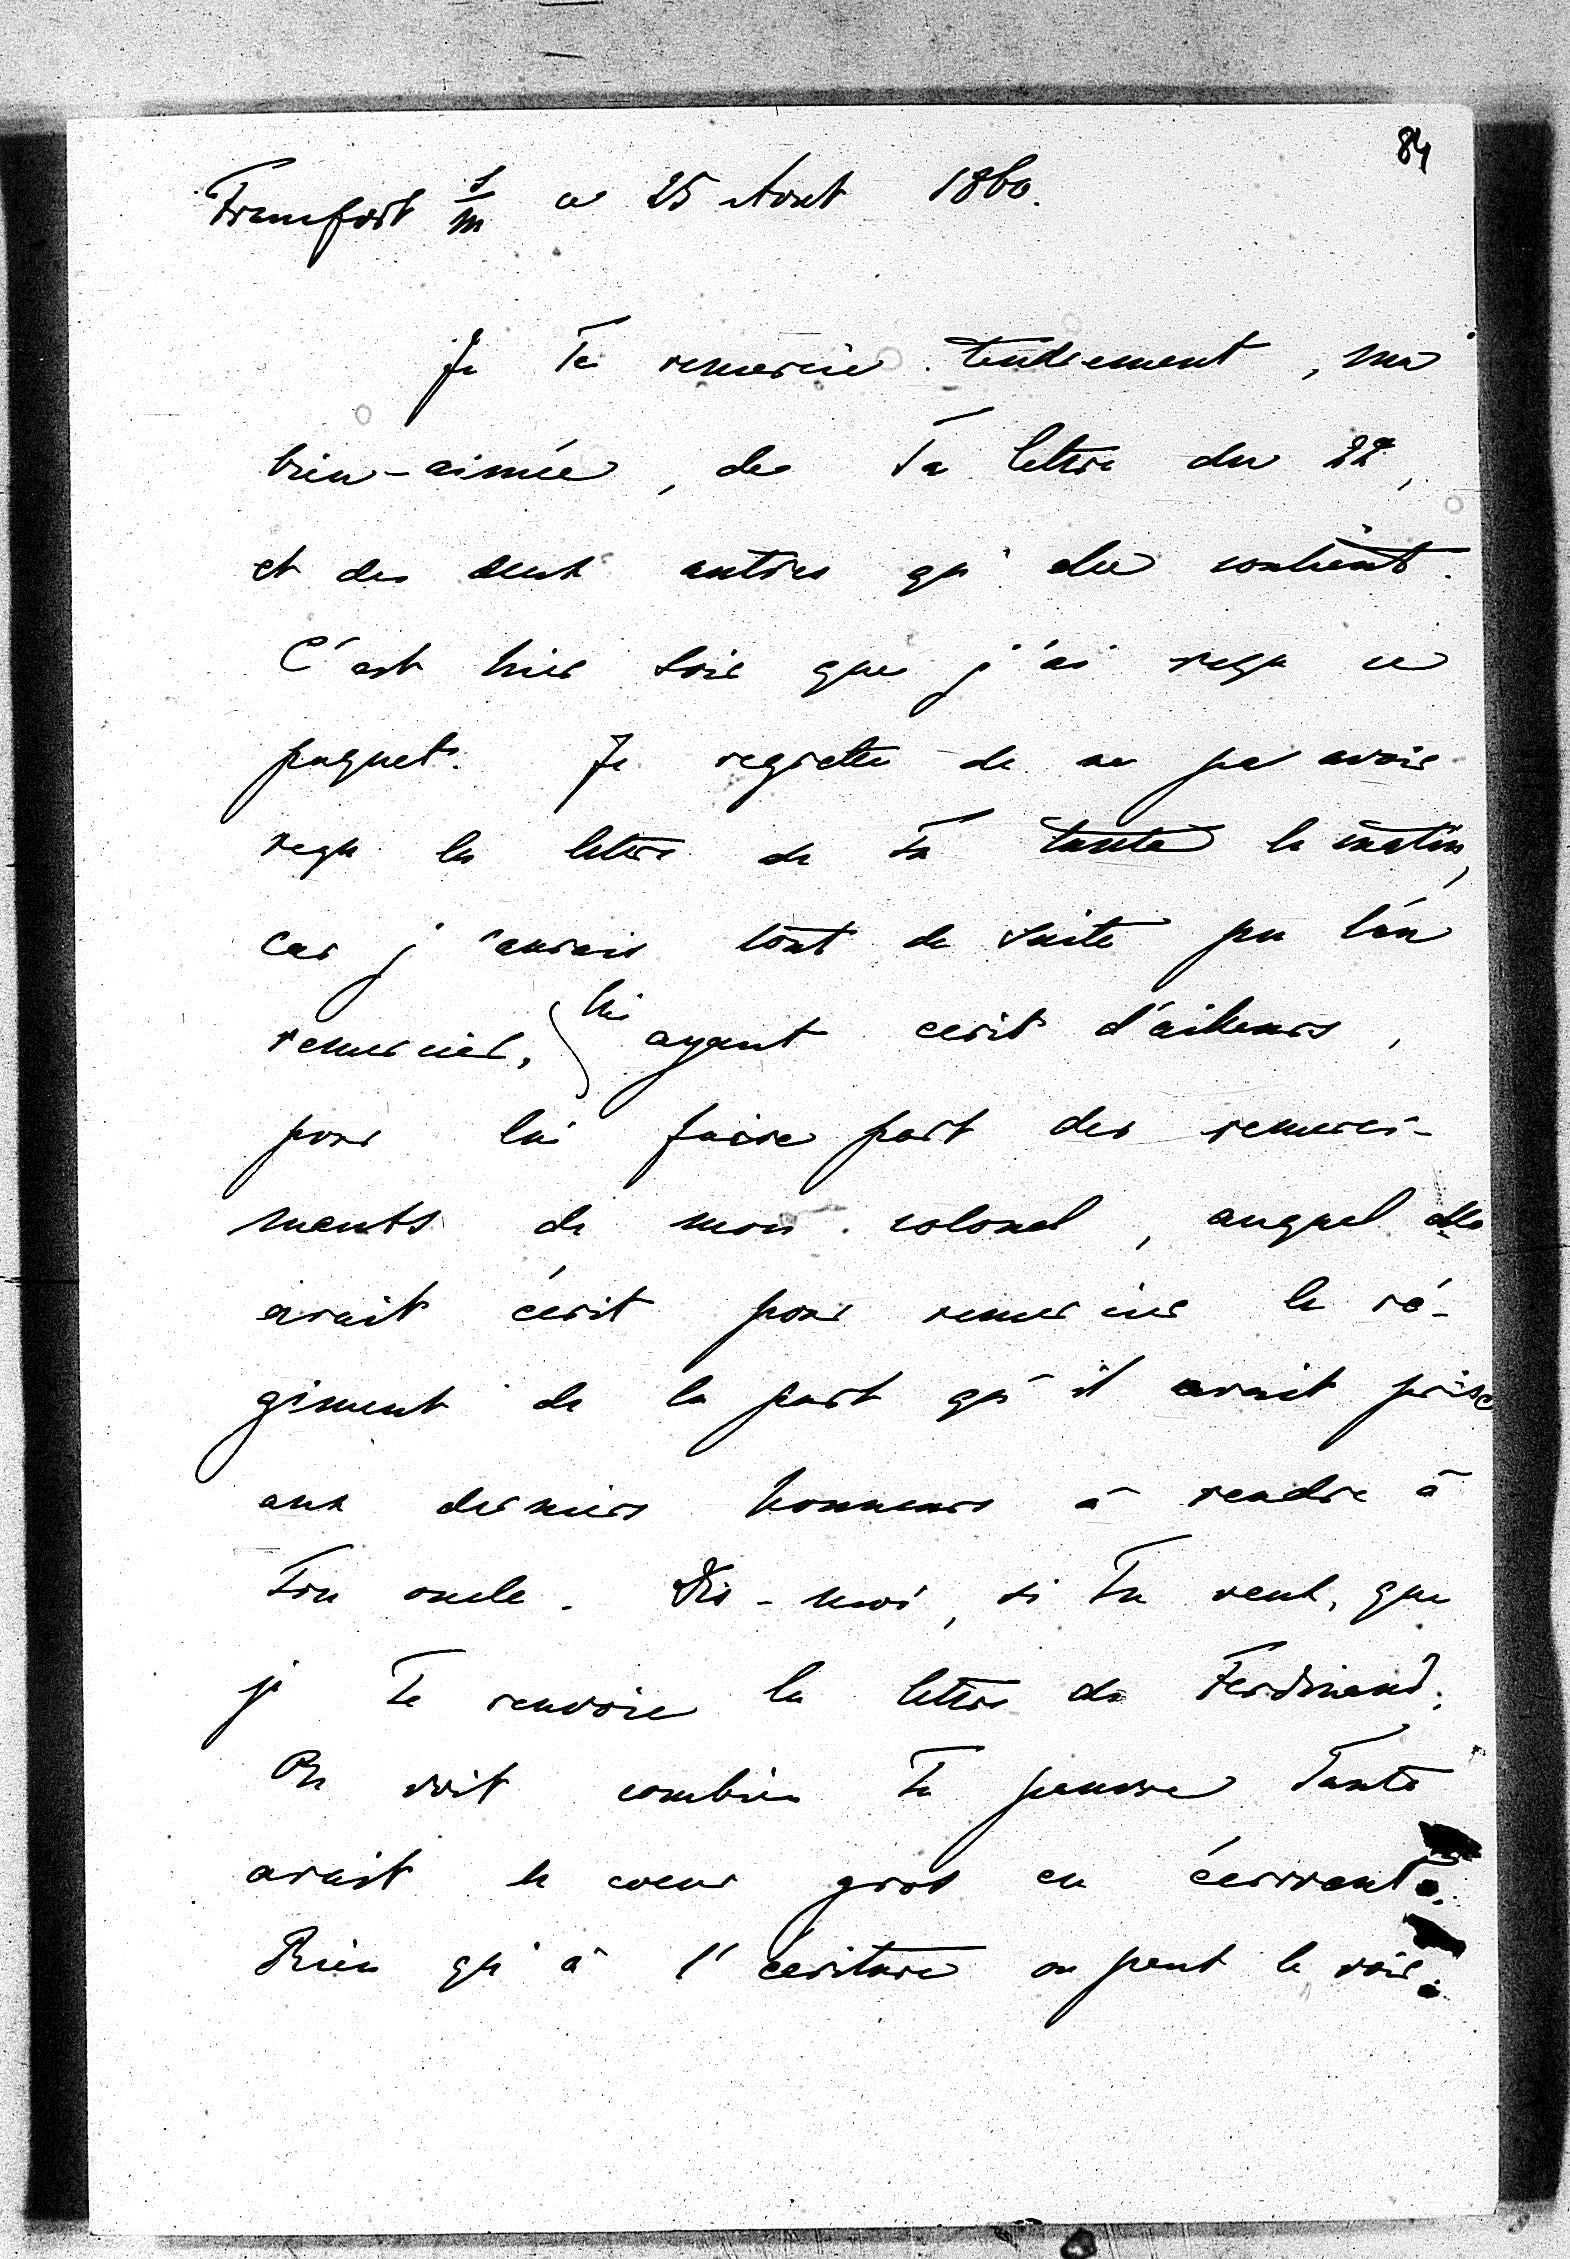 84
Francfort s/m ce 25 Aout 1860.
Je Te remercie tendrement, ma
bien-aimée, de Ta lettre du 22,
et des deux autres qu'elle contient.
C'est hier soir que j'ai reçu ce
paquet. Je regrette de ne pas avoir
reçu la lettre de Ta tante le matin,
car j'aurais tout de suite pu l'en
remercier, lui ayant écrit d'ailleurs,
pour lui faire part des remerci-
ments de mon colonel, auquel elle
avait écrit pour remercier le ré-
giment de la part qu'il avait prise
aux derniers honneurs à rendre à
Ton oncle. Dis-moi, si Tu veux, que
je Te renvoie la lettre de Ferdinand.
On voit combien Ta pauvre Tante
avait le coeur gros en écrivant.
Rien qu'à l'écriture on peut le voir.